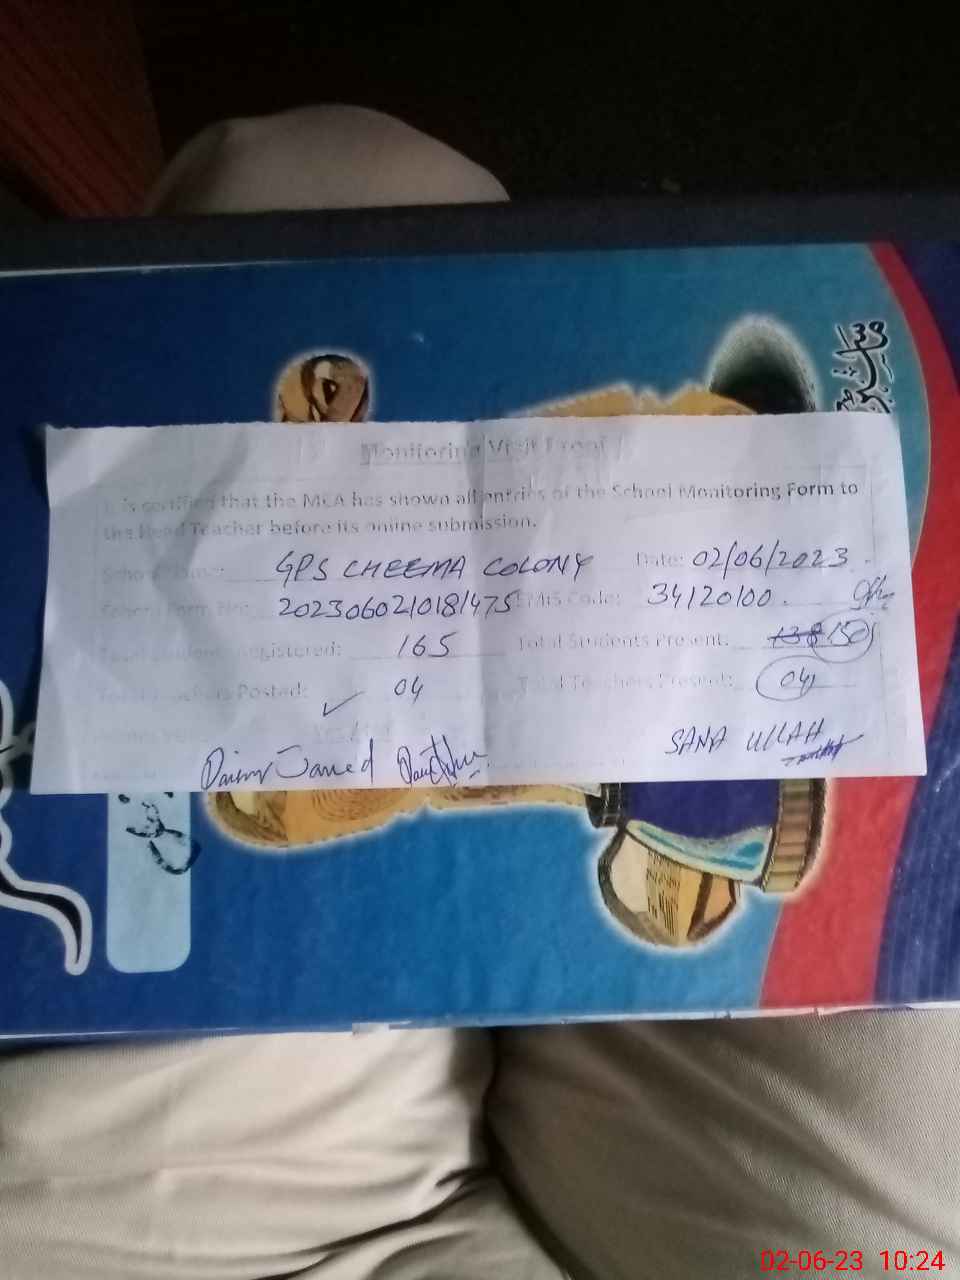 Monitoring Visit Proof
It is certified that the MEA has shown all entries of the School Monitoring Form to
the Head Teacher before its online submission.
School Name: GPS CHEEMA COLONY Date: 02/06/2023
School Form No: 2023060210181475 EMIS Code: 34120100
Total Students Registered: 165 Total Students Present: 138 150
Total Teachers Posted: 04 Total Teachers Present: 04
SANA ULLAH
02-06-23 10:24